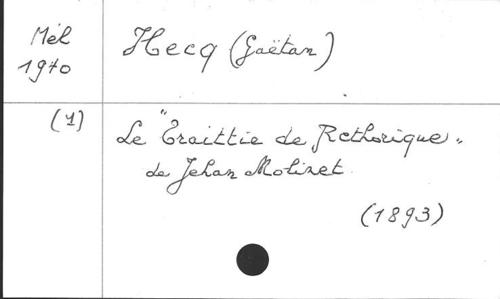 Mél
1940
Hecq (Gaëtan)
(1)
Le "Traittie de Rethorique"
de Jehan Molinet.
(1893)